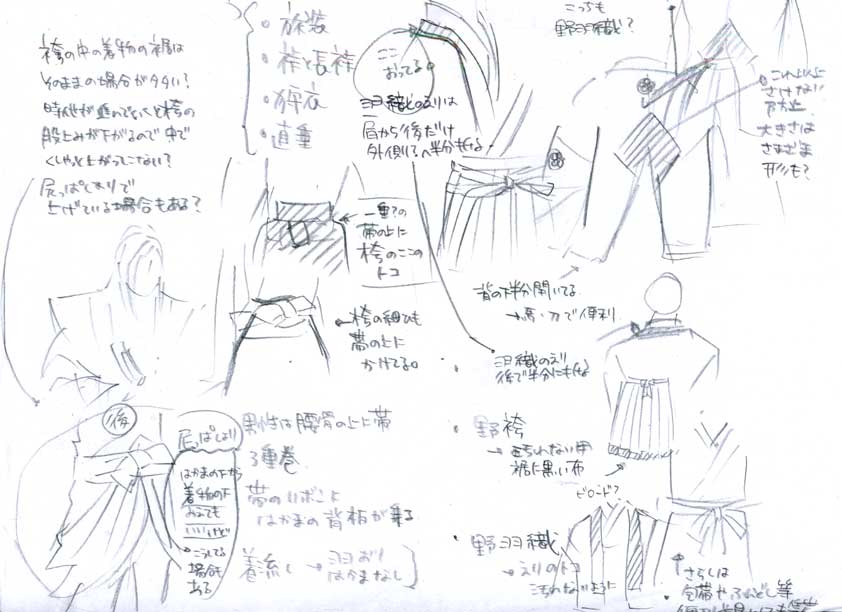 袴の中の着物の裾は
そのままの場合が多い?
時代が進んでいくと袴の
股上みが下がるので中で
くしゃっと上がってこない?
尻っぱしょりで
上げている場合もある?
・旅装
・裃と長裃
・狩衣
・直垂
ここ
おってる。
羽織のえりは
肩から後だけ
外側にへ半分もげる
こっちも
野羽織?
これ以上
さけない
方止
大きさは
さまざま
形も?
一重?の
帯の上に
袴のここの
トコ
袴の細ひも
帯の上に
かけてる。
背の下半分開いてる
→馬・刀で便利
・羽織のえり
後で半分にもげる
・野袴
→汚れない用
裾に黒い布
ビロード?
・野羽織
→えりのトコ
汚れないように
さらしは
包帯やふんどし等
後
尻っぱしょり
はかまの下から
着物の下
おろても
いいけど
こうしてる
場合も
ある
男性は腰骨の上に帯
3重巻
帯のリボンに
はかまの背板が乗る
着流し→羽おり
はかまなし